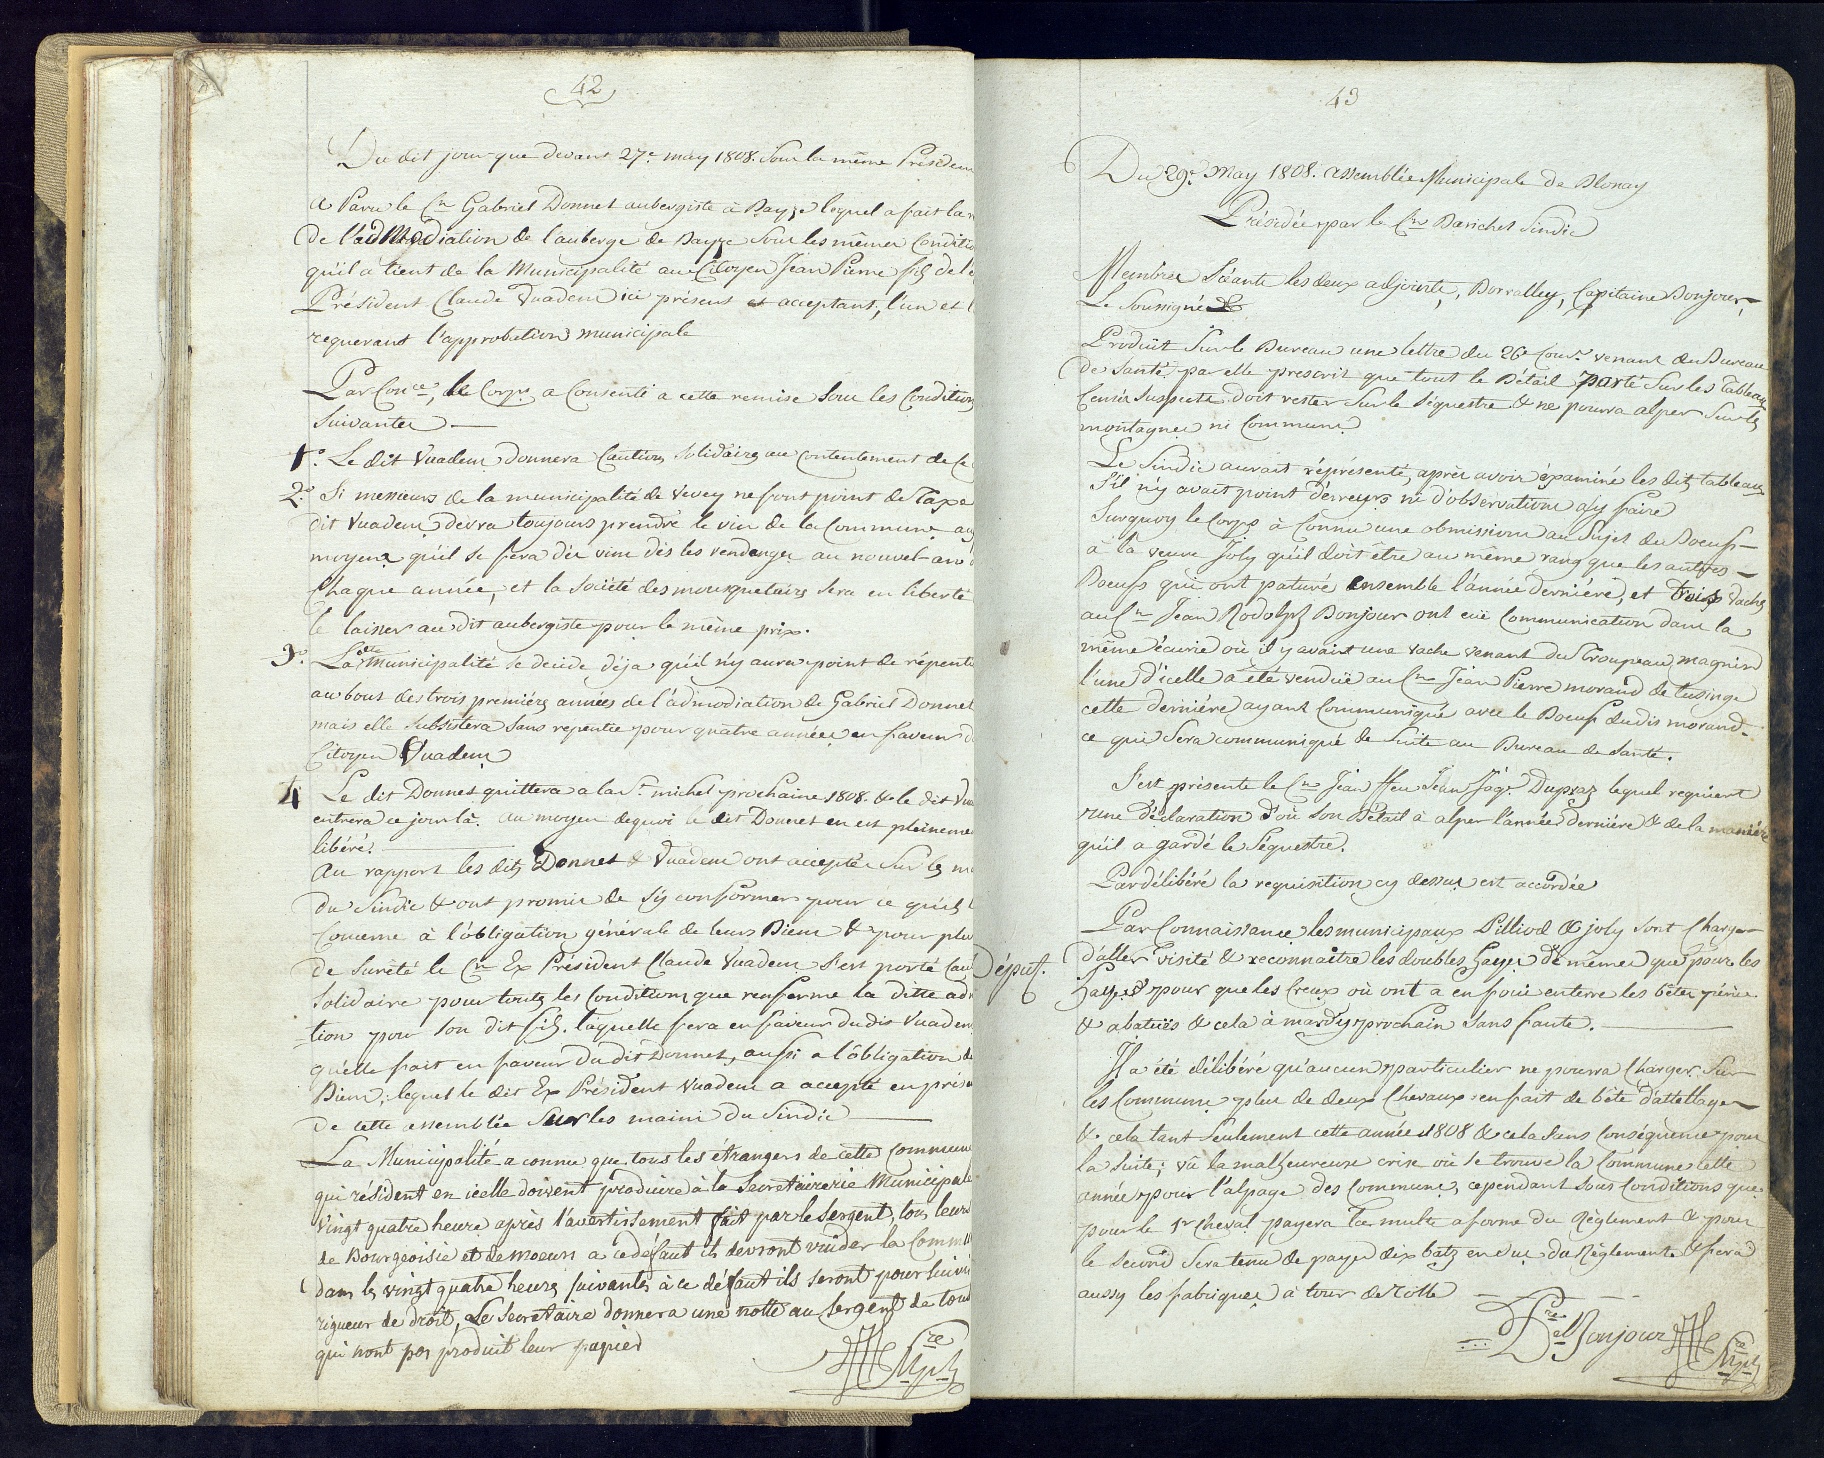 42
Du dit jour que devant 27e may 1808. Sous la même Présiden
A Paru le Cn Gabriel Donnet aubergiste à Bayse lequel a fait la r
de l'admodiation de l'auberge de Bayse sous les mêmes Conditio
qu'il à tient de la Municipalité au Citoyen Jean Pierre fils de l'e
Président Claude Vuadens ici présent et acceptant, l'un et l
requerant l'approbation municipale
Par Conce, le Corps a Consenti a cette remise sous les Condition
Suivantes —
1o. Le dit Vuadens donnera Caution Solidaire au contentement de Ce
2o. Si messieurs de la municipalité de Vevey ne font point de Taxe
dit Vuadens devra toujours prendre le vin de la Commune au
moyens qu'il se fera des vins dès les vendanges au nouvel-an d
Chaque année, et la société des mousquetaires sera en liberté
le laisser au dit aubergiste pour le même prix.
3o. La dte Municipalité se décide déja qu'il n'y aura point de répenti
au bout des trois premières années de l'admodiation de Gabriel Donnet
mais elle subsistera sans repentie pour quatre années en faveur d
Citoyen Vuadens
4 Le dit Donnet quittera a la St michel prochaine 1808. & le dit Vua
entrera ce jour là. au moyen dequoi le dit Donnet en est pleineme
libéré.
Au rapport les dits Donnet & Vuadens ont accepté Sur les m
du Sindic & ont promis de s'y conformer pour ce qu'ils l
Concerne à l'obligation générale de leurs Biens & pour plus
de Sureté le Cn Ex Président Claude Vuadens s'est porté Cau
Solidaire pour toutes les Conditions que renferme la ditte ad
tion pour son dit fils. laquelle sera en faveur dudit Vuadens
qu'elle fait en faveur du dit Donnet, aussi a l'obligation de
Biens, lequel le dit Ex Président Vuadens a accepté en prése
de cette assemblée Sur les mains du Sindic —
La Municipalité a connu que tous les étrangers de cette Commune
qui résident en icelle doivent produire à la Secretairerie Municipale
vingt quatre heure après l'avertissement fait par le Sergent, tous leurs
de Bourgeoisie et de moeurs a ce défaut ils devront vuider la Comm
dans les vingt quatre heures suivantes à ce défaut ils seront poursuivi
rigueur de droit, Le Secretaire donnera une notte au Sergent de tous
qui n'ont pas produit leur papier
43
Du 29e May 1808. Assemblée Municipale de Blonay
Présidée par le Cn Barichet Sindic
Membres Séants les deux adjoints, Borralley, Capitaine Bonjour,
Le Soussigné
Produit sur le Bureau une lettre du 26e Cour. venant du Bureau
de Santé par elle prescrit que tout le Bétail porté sur les Tableau
Censés Suspects doit rester sur le séquestre & ne pourra alper sur les
montagnes ni Communs
Le Sindic aurait réprésenté, après avoir examiné les dits tableaux
S'il n'y avait point d'erreurs ni d'observation a'y faire
Surquoy le Corps à Connu une obmission au Sujet du Boeuf
à la veuve Joly qu'il doit être au même rang que les autres
Boeufs qui ont paturé ensemble l'année dernière, et trois vaches
au Cn Jean Rodolph Bonjour ont eüe Communication dans la
même écurie où il y avait une vache venant du troupeau magnin
l'une d'icelle a été venduë au Cn Jean Pierre morand de tusinge
cette dernière ayant Communiqué avec le Boeuf dudit morand.
ce qui sera communiqué de suite au Bureau de Santé.
S'est présenté le Cn Jean ffeu Jean Jaqs Dupraz lequel requiert
une déclaration d'où son Bétail à alper l'année dernière & de la manière
qu'il a gardé le séquestre.
Par délibéré la requisition cy dessus est accordée
Par Connaissance les municipaux Pilliod & joly sont Charger
Députs. d'aller visité & reconnaitre les doubles hayes de même que pour les
hayes pour que les Creux où ont a enfouie enterre les bêtes péries
& abatuës & cela à mardy prochain sans faute. —
Il a été délibéré qu'aucun particulier ne pourra Charger sur
les Communs plus de deux Chevaux en fait de bête d'attellage
& cela tant seulement cette année 1808 & cela sans Conséquence pour
la Suite; vû la malheureuse crise où se trouve la Commune cette
année pour l'alpage des Communs, cependant sous Conditions que
pour le 1r cheval payera la multe a forme du Règlement & pour
le second sera tenu de payer dix batz en sus du Règlement & fera
aussy les fabriques à tour de rolle —
Bonjour